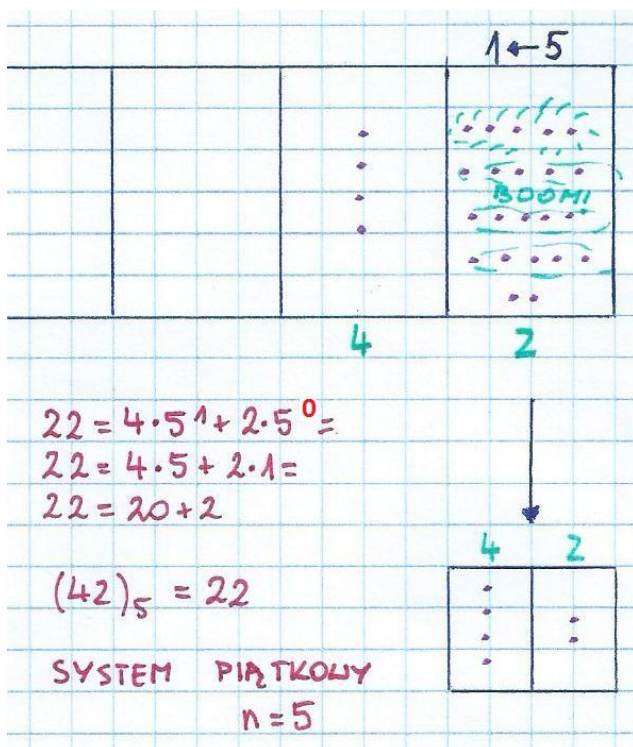 1←5
BOOM!
4 2
22 = 4·5¹ + 2·5⁰ =
22 = 4·5 + 2·1 =
22 = 20 + 2
4 2
(42)₅ = 22
SYSTEM PIĄTKOWY
n = 5